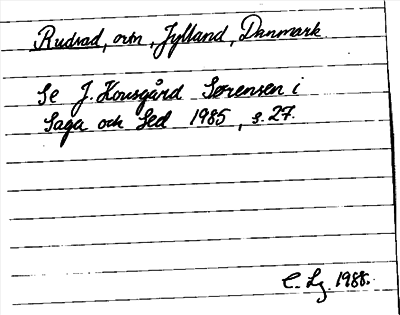 Rudvad, ortn, Jylland, Danmark
Se J. Kousgård Sørensen i
Saga och Sed 1985, s. 27.
C. Lg. 1988.